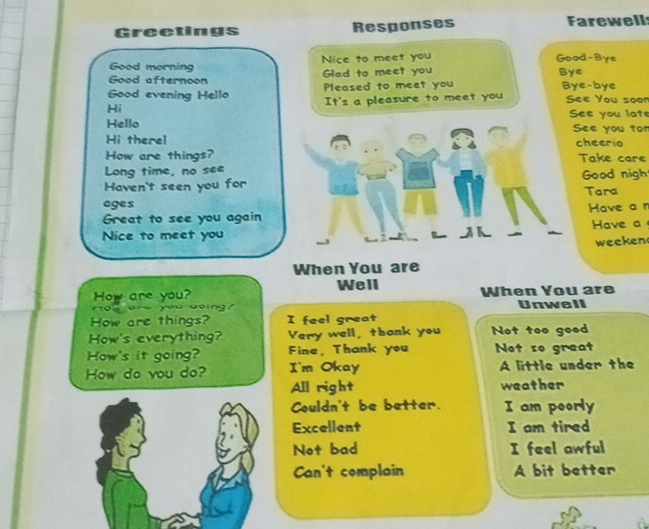 Greetings
Good morning
Good afternoon
Good evening Hello
Hi
Hello
Hi there!
How are things?
Long time, no see
Haven't seen you for
ages
Great to see you again
Nice to meet you
Responses
Nice to meet you
Glad to meet you
Pleased to meet you
It's a pleasure to meet you
Farewell
Good-Bye
Bye
Bye-bye
See You soon
See you
See you
cheerio
Take care
Good
Tara
Have a
Have a
How are you?
How are you doing?
How are things?
How's everything?
How's it going?
How do you do?
When You are
Well
I feel great
Very well, thank you
Fine, Thank you
I'm Okay
All right
Couldn't be better.
Excellent
Not bad
Can't complain
When You are
Unwell
Not too good
Not so great
A little under the
weather
I am poorly
I am tired
I feel awful
A bit better